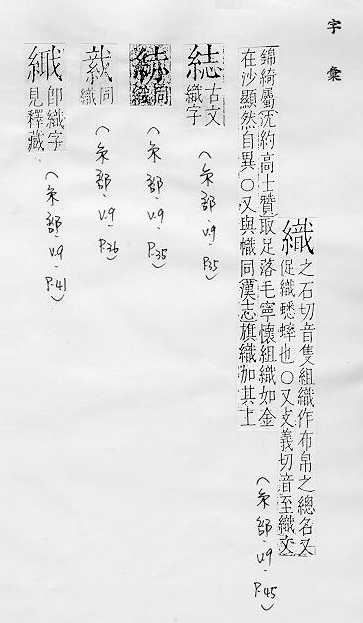 字彙
織之石切音隻組織作布帛之總名又
促織蟋蟀也○又支義切音至織文
錦綺屬沈約高士贊取足落毛寧懷組織如金
在沙顯然自異○又與幟同漢志旗織加其上
(糸部.V9.P.45)
古文
織字
(糸部.V9.P.35)
同
(糸部.V9.P.35)
同
織
(糸部.V9.P.36)
即織字
見釋藏
(糸部.V9.P.41)